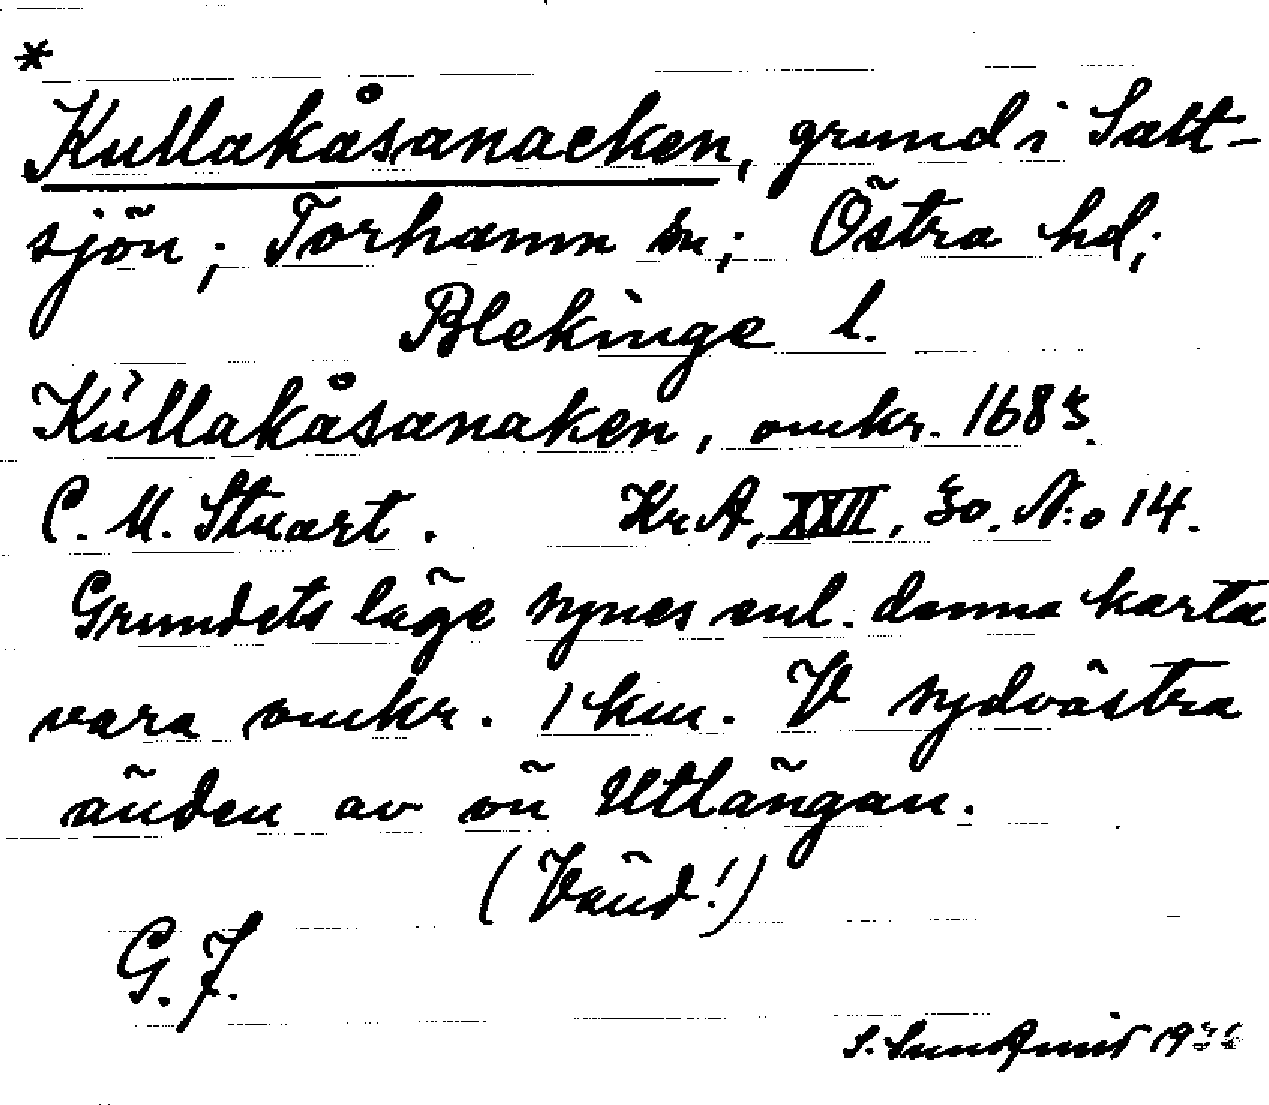 *
Kullakåsanacken, grund i Salt-
sjön; Torhamn sn; Östra hd;
Blekinge l.
Kůllakåsanaken, omkr. 1683.
C. M. Stuart. KrA, XXII, 30. N:o 14.
Grundets läge synes enl. denna karta
vara omkr. 1 km. V sydvästra
änden av ön Utlängan.
(Vänd!)
G. F.
S. Sundqvist